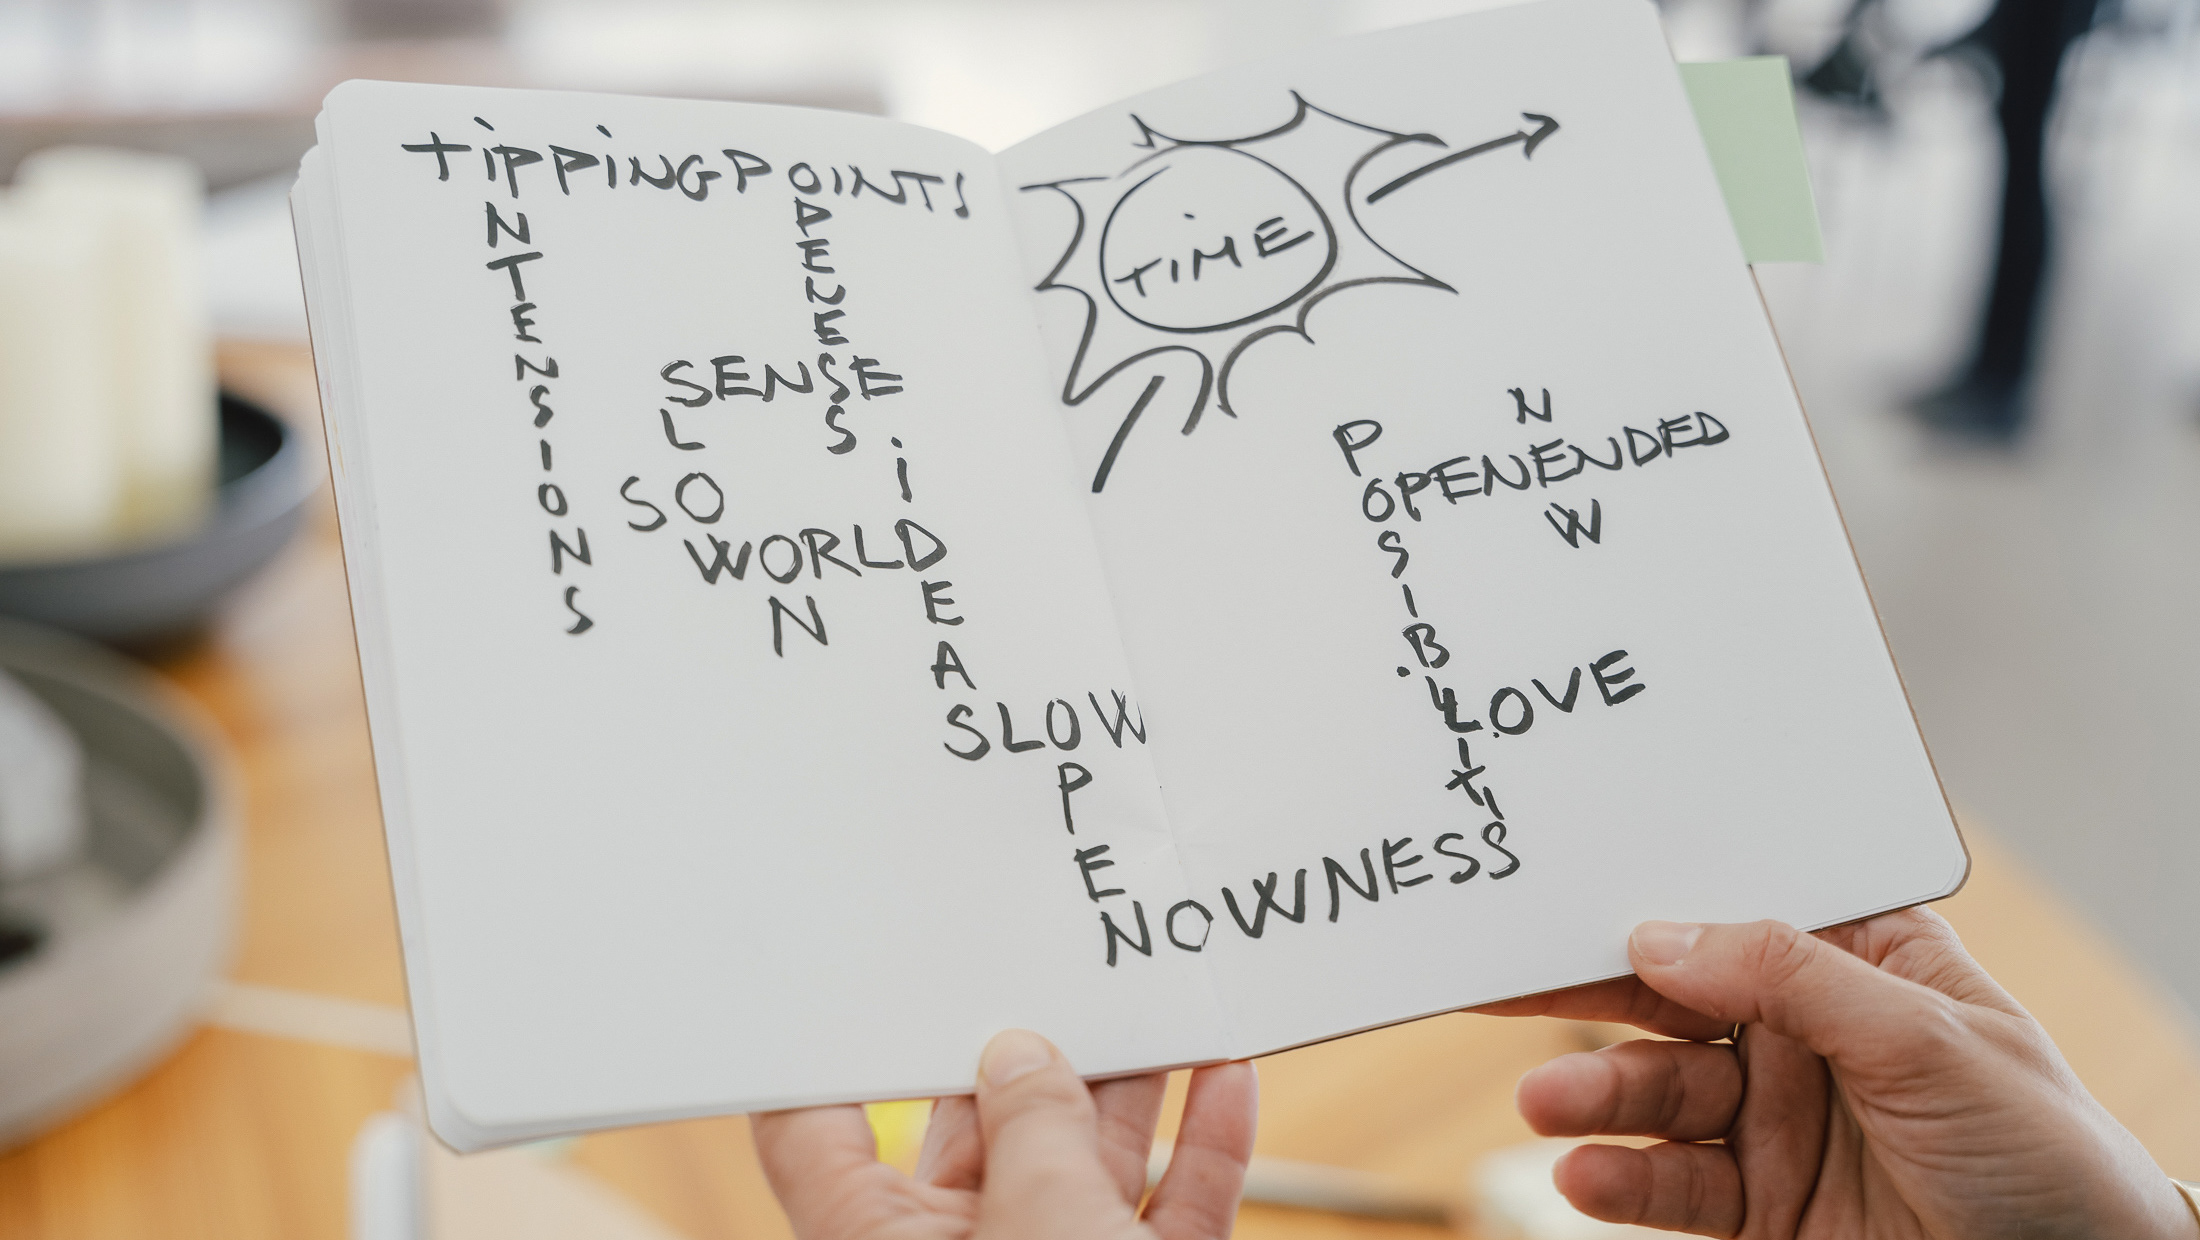 TIPPINGPOINTS
INTENSIONS
OPENESS
SENSE
SLOW
SO
WORLD
ON
IDEAS
SLOW
OPEN
NOWNESS
TIME
POSSIBILITIS
OPENENDED
NEW
LOVE